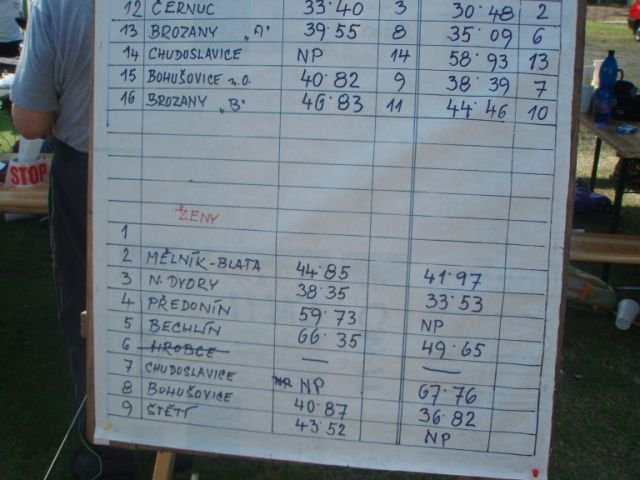 12 ČERNUC 33·40 3 30·48 2
13 BROZANY „A" 39·55 8 35·09 6
14 CHUDOSLAVICE NP 14 58·93 13
15 BOHUŠOVICE n.O. 40·82 9 38·39 7
16 BROZANY „B" 46·83 11 44·46 10
STOP
ŽENY
1
2 MĚLNÍK-BLATA 44·85 41·97
3 N.DVORY 38·35 33·53
4 PŘEDONÍN 59·73 NP
5 BECHLÍN 66·35 49·65
6 HROBCE — —
7 CHUDOSLAVICE NP 67·76
8 BOHUŠOVICE 40·87 36·82
9 ŠTĚTÍ 43·52 NP